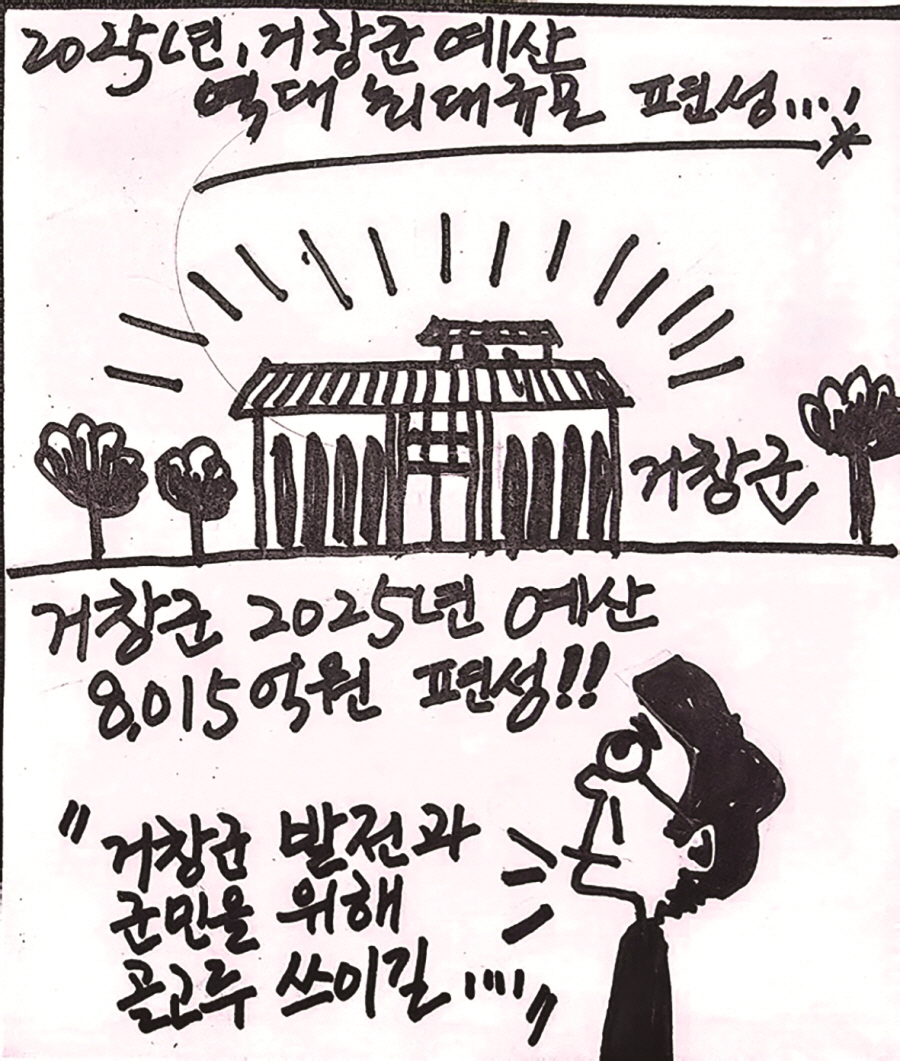 2025년, 거창군 예산
역대 최대규모 편성...!
거창군
거창군 2025년 예산
8,015억원 편성!!
"거창군 발전과
군민을 위해
골고루 쓰이길...."